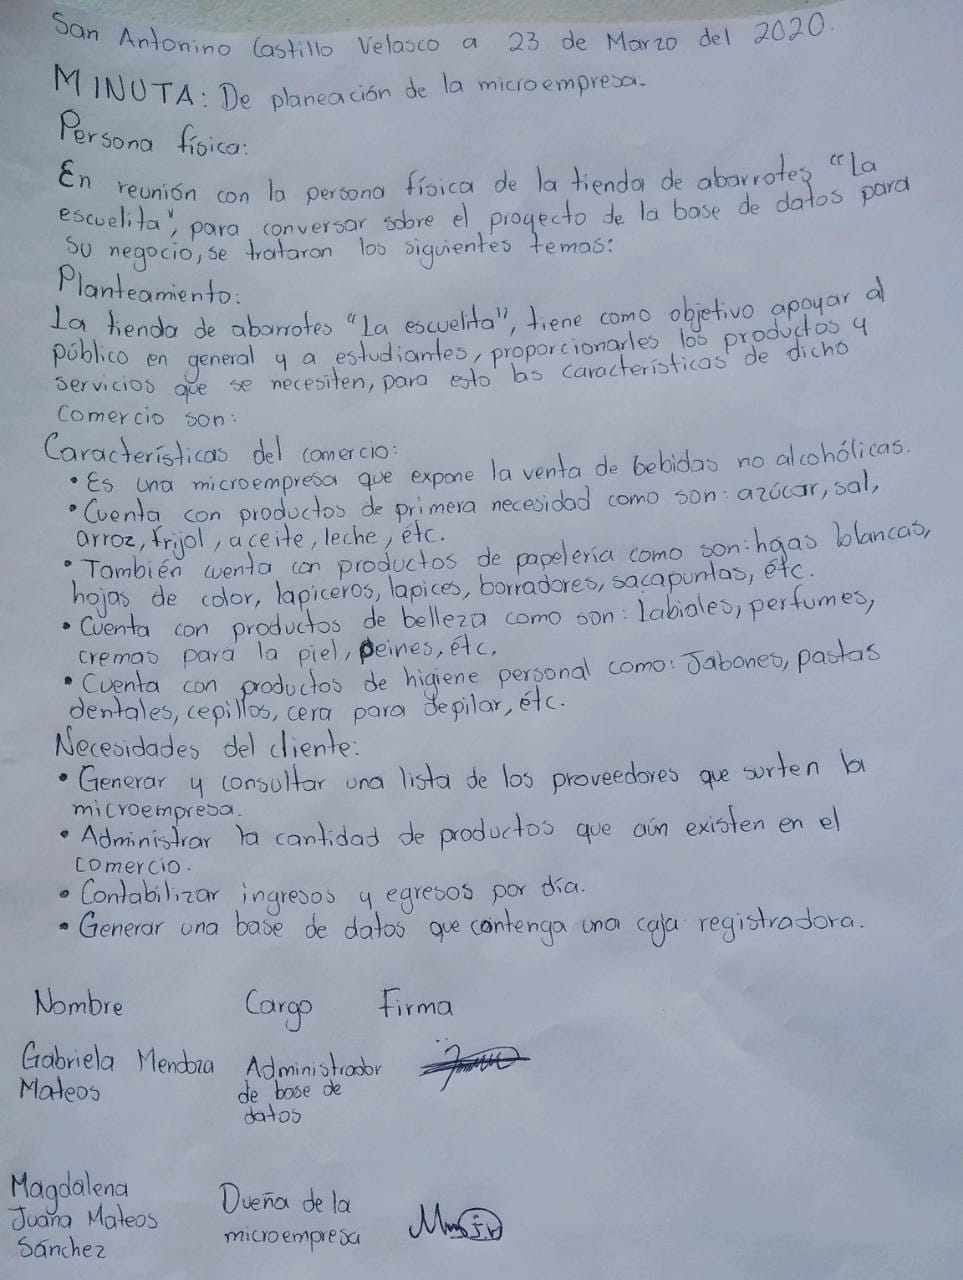 San Antonino Castillo Velasco a 23 de Marzo del 2020.
MINUTA: De planeación de la microempresa.
Persona física:
En reunión con la persona física de la tienda de abarrotes "La
escuelita", para conversar sobre el proyecto de la base de datos para
su negocio, se trataron los siguientes temas:
Planteamiento:
La tienda de abarrotes "La escuelita", tiene como objetivo apoyar al
público en general y a estudiantes, proporcionarles los productos y
servicios que se necesiten, para esto las características de dicho
comercio son:
Características del comercio:
• Es una microempresa que expone la venta de bebidas no alcohólicas.
• Cuenta con productos de primera necesidad como son: azúcar, sal,
arroz, frijol, aceite, leche, etc.
• También cuenta con productos de papelería como son: hojas blancas,
hojas de color, lapiceros, lapices, borradores, sacapuntas, etc.
• Cuenta con productos de belleza como son: Labiales, perfumes,
cremas para la piel, peines, etc,
• Cuenta con productos de higiene personal como: Jabones, pastas
dentales, cepillos, cera para depilar, etc.
Necesidades del cliente:
• Generar y consultar una lista de los proveedores que surten la
microempresa.
• Administrar la cantidad de productos que aún existen en el
comercio.
• Contabilizar ingresos y egresos por día.
• Generar una base de datos que contenga una caja registradora.
Nombre Cargo Firma
Gabriela Mendoza Administrador
Mateos de base de
datos
Magdalena Dueña de la
Juana Mateos microempresa
Sánchez